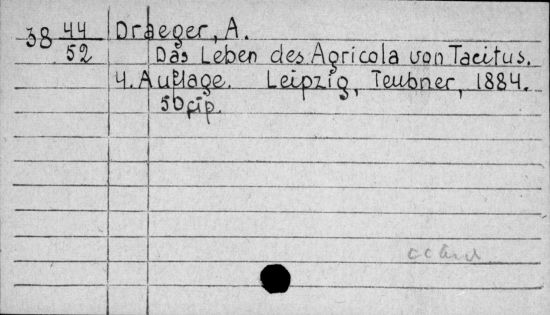 38 44 Draeger, A.
52 Das Leben des Agricola von Tacitus.
4. Auflage. Leipzig, Teubner, 1884.